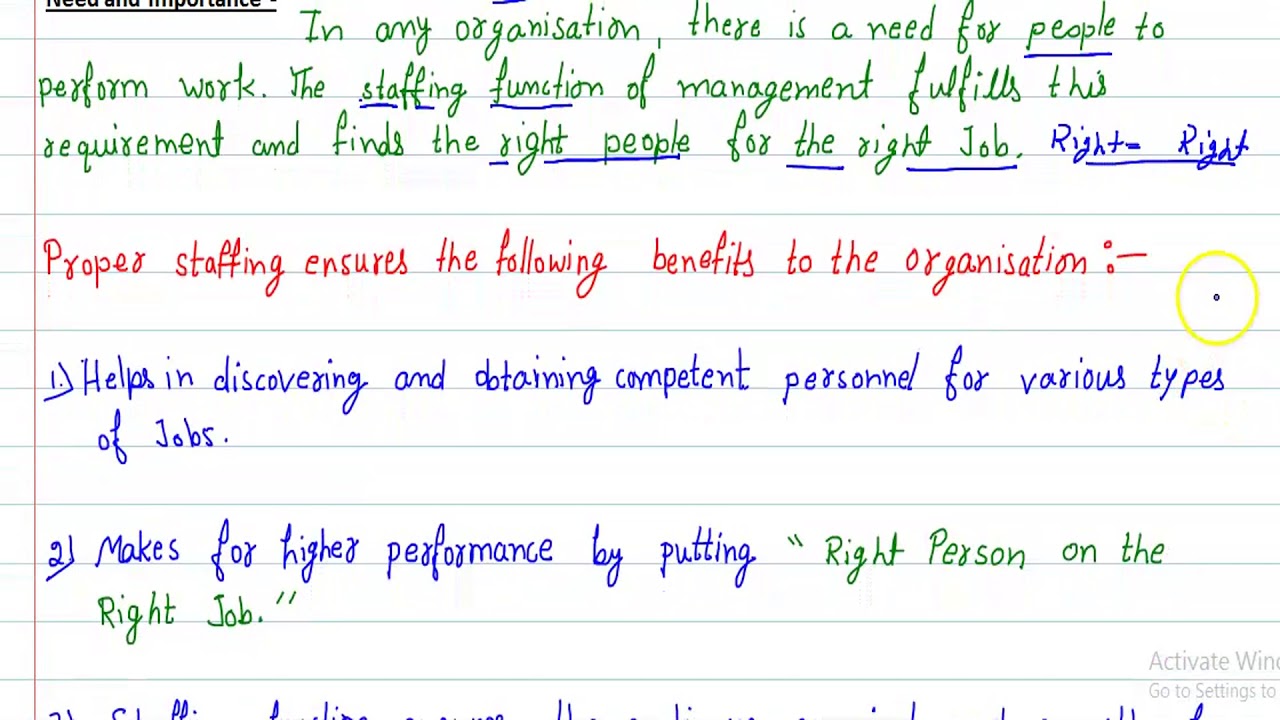 Need and Importance -
In any organisation, there is a need for people to
perform work. The staffing function of management fulfills this
requirement and finds the right people for the right Job. Right - Right
Proper staffing ensures the following benefits to the organisation :-
1.) Helps in discovering and obtaining competent personnel for various types
of Jobs.
2) Makes for higher performance by putting "Right Person on the
Right Job."
Activate Win
Go to Settings to